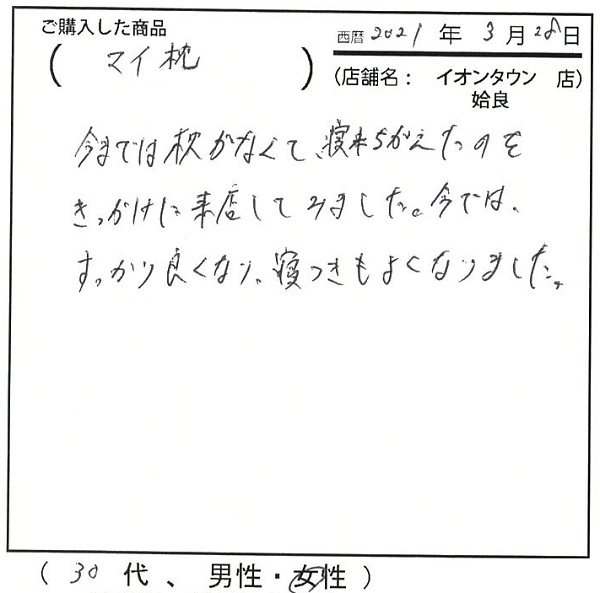 ご購入した商品
( マイ枕 )
西暦 2021 年 3 月 28 日
(店舗名： イオンタウン 店)
姶良
今までは枕がなくて、寝ちがえたのを
きっかけに来店してみました。今では、
すっかり良くなり、寝つきもよくなりました。
( 30 代 、 男性・女性 )